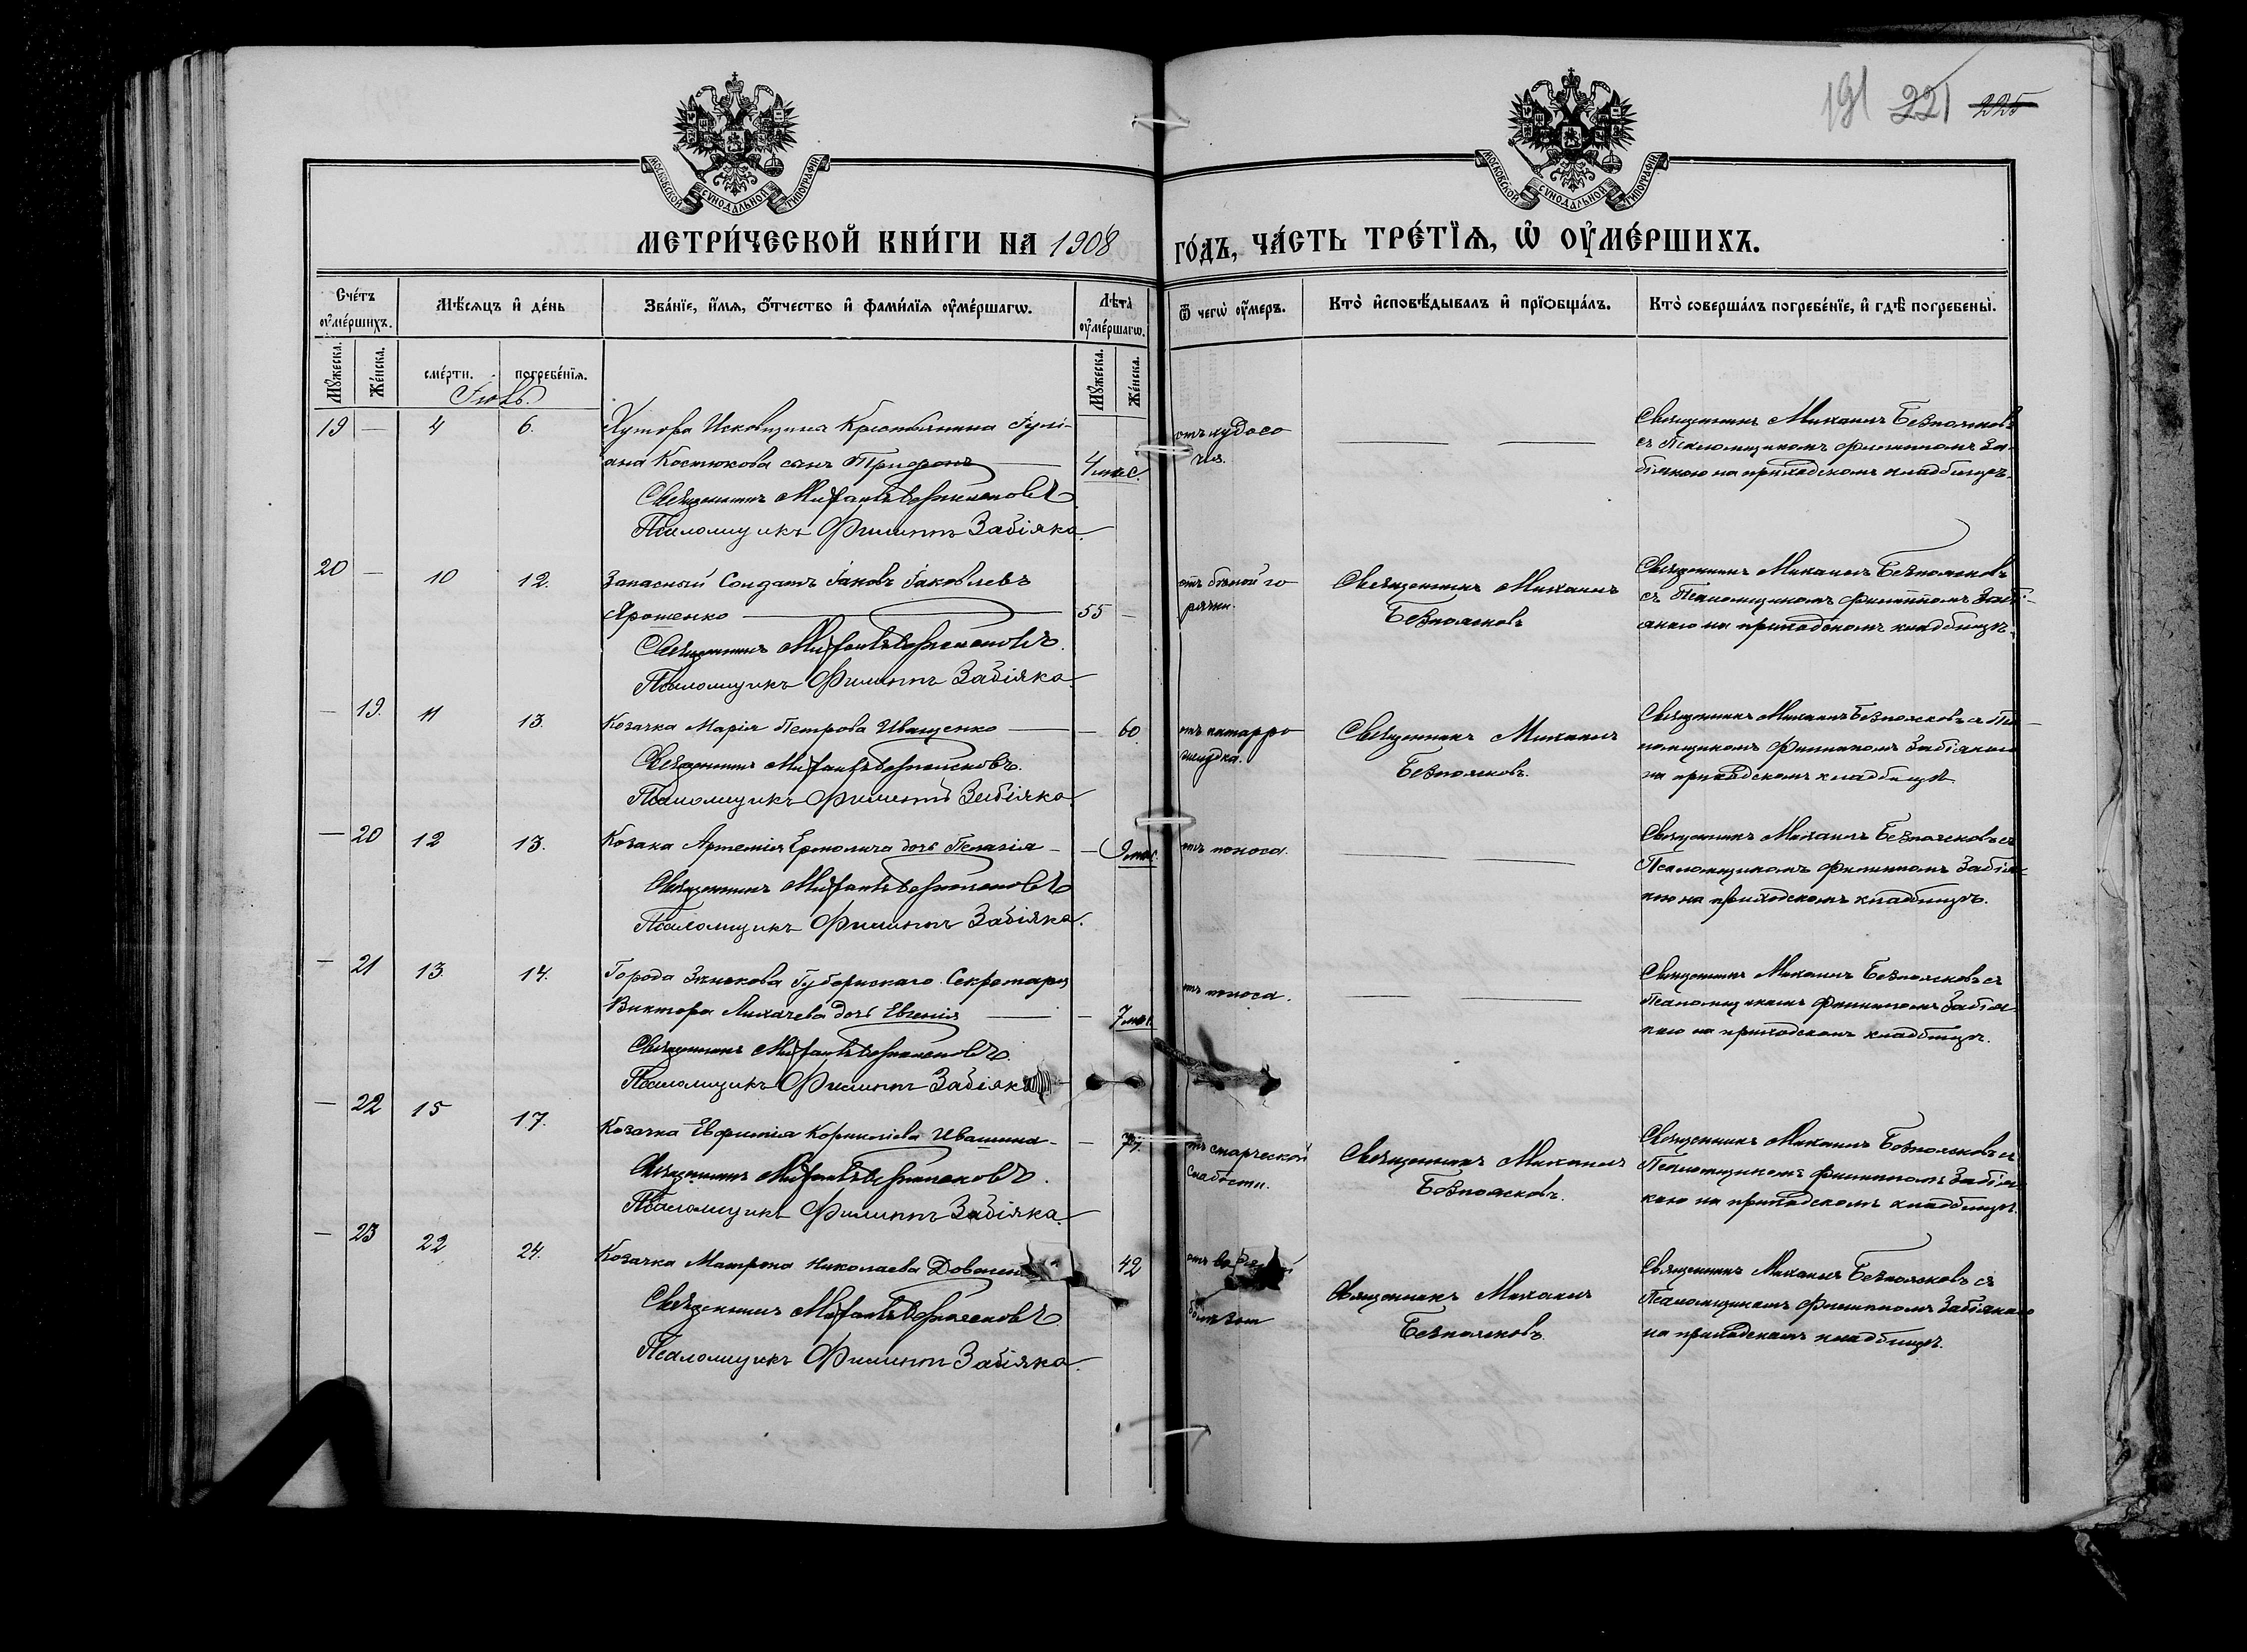 191 221 225
МОСКОВСКОЙ СѴНОДАЛЬНОЙ ТИПОГРАФІИ
МОСКОВСКОЙ СѴНОДАЛЬНОЙ ТИПОГРАФІИ
МЕТРИ́ЧЕСКОЙ КНИ́ГИ НА 1908 ГО́ДЪ, ЧА́СТЬ ТРЕ́ТЇѦ, Ѡ҆ ОУ҆МЕ́РШИХЪ.
Сче́тъ оу҆ме́ршихъ.
Мѣ́сѧцъ и҆ де́нь
Зва́нїе, и҆́мѧ, ѻ҆́тчество и҆ фами́лїѧ оу҆ме́ршагѡ.
Лѣта̀ оу҆ме́ршагѡ.
Ѿ чегѡ̀ оу҆́меръ.
Кто̀ и҆сповѣ́дывалъ и҆ прїѻбща́лъ.
Кто̀ соверша́лъ погребе́нїе, и҆ гдѣ̀ погребены̀.
Мꙋ́жеска. Же́нска. сме́рти. погребе́нїѧ. Мꙋ́жеска. Же́нска.
Іюль.
19 — 4 6. Хутора Исковщина Крестьянина Іулі-
ана Костюкова сынъ Трифонъ — 4 мѣс.
Священникъ Михаилъ Безпоясковъ
Псаломщикъ Филиппъ Забіяка
отъ худосо
чія.
— —
Священникъ Михаилъ Безпоясковъ
съ Псаломщикомъ Филиппомъ За-
біякою на приходскомъ кладбищѣ.
20 — 10 12. Запасный Солдатъ Іаковъ Іаковлевъ
Ярошенко — 55 —
Священникъ Михаилъ Безпоясковъ.
Псаломщикъ Филиппъ Забіяка
отъ бѣлой го
рячки.
Священникъ Михаилъ
Безпоясковъ
Священникъ Михаилъ Безпоясковъ
съ Псаломщикомъ Филиппомъ Забі-
якою на приходскомъ кладбищѣ.
— 19. 11 13. Козачка Марія Петрова Иващенко — — 60
Священникъ Михаилъ Безпоясковъ.
Псаломщикъ Филиппъ Забіяка
отъ катарра
желудка.
Священникъ Михаилъ
Безпоясковъ.
Священникъ Михаилъ Безпоясковъ съ Пса-
ломщикомъ Филиппомъ Забіякою
на приходскомъ кладбищѣ
— 20 12 13. Козака Артемія Ермолича дочь Пелагія — — 9 мѣс.
Священникъ Михаилъ Безпоясковъ
Псаломщикъ Филиппъ Забіяка.
отъ поноса.
— —
Священникъ Михаилъ Безпоясковъ съ
Псаломщикомъ Филиппомъ Забія-
кою на приходскомъ кладбищѣ.
— 21 13. 14. Города Зѣнькова Губернскаго Секретаря
Виктора Лихачева дочь Евгенія — — 7 мѣс.
Священникъ Михаилъ Безпоясковъ.
Псаломщикъ Филиппъ Забіяка
отъ поноса.
— —
Священникъ Михаилъ Безпоясковъ съ
Псаломщикомъ Филиппомъ Забія-
кою на приходскомъ кладбищѣ.
— 22 15 17. Козачка Евфимія Корнилієва Ивашина — —
Священникъ Михаилъ Безпоясковъ.
Псаломщикъ Филиппъ Забіяка
отъ старческой
слабости.
Священникъ Михаилъ
Безпоясковъ.
Священникъ Михаилъ Безпоясковъ съ
Псаломщикомъ Филиппомъ Забія-
кою на приходскомъ кладбищѣ.
— 23 22 24. Козачка Матрона Николаева 42
Священникъ Михаилъ Безпоясковъ
Псаломщикъ Филиппъ Забіяка.
отъ
Священникъ Михаилъ
Безпоясковъ
Священникъ Михаилъ Безпоясковъ съ
Псаломщикомъ Филиппомъ Забіякою
на приходскомъ кладбищѣ.